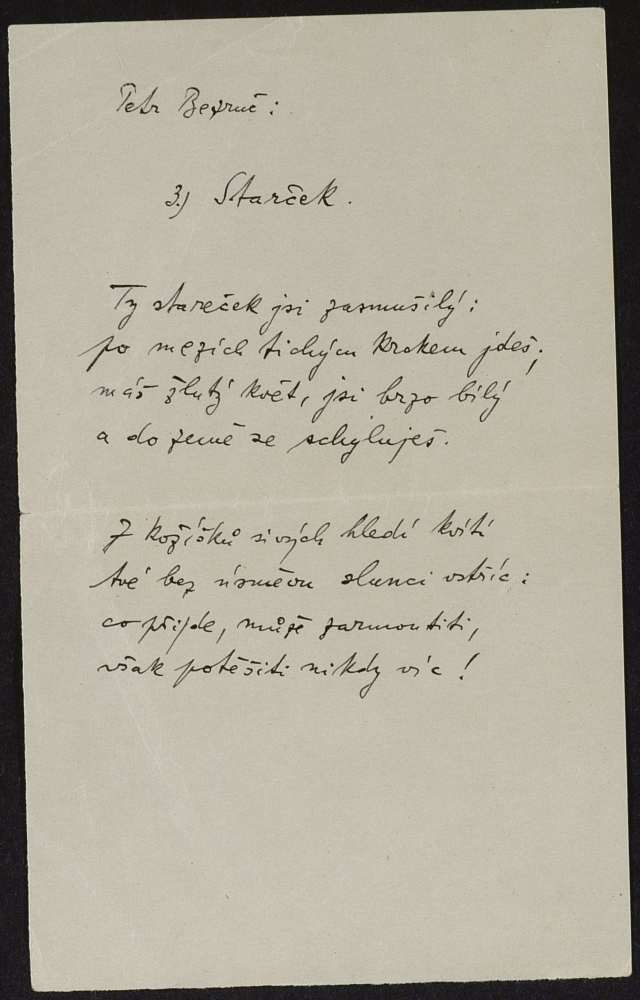 Petr Bezruč:
3.) Starček.
Ty stareček jsi zasmušilý:
po mezích tichým krokem jdeš;
máš žlutý květ, jsi brzo bílý
a do země se schyluješ.
Z kožíšků sivých hledí kvítí
tvé bez úsměvu slunci vstříc:
co přijde, může zarmoutiti,
však potěšiti nikdy víc!